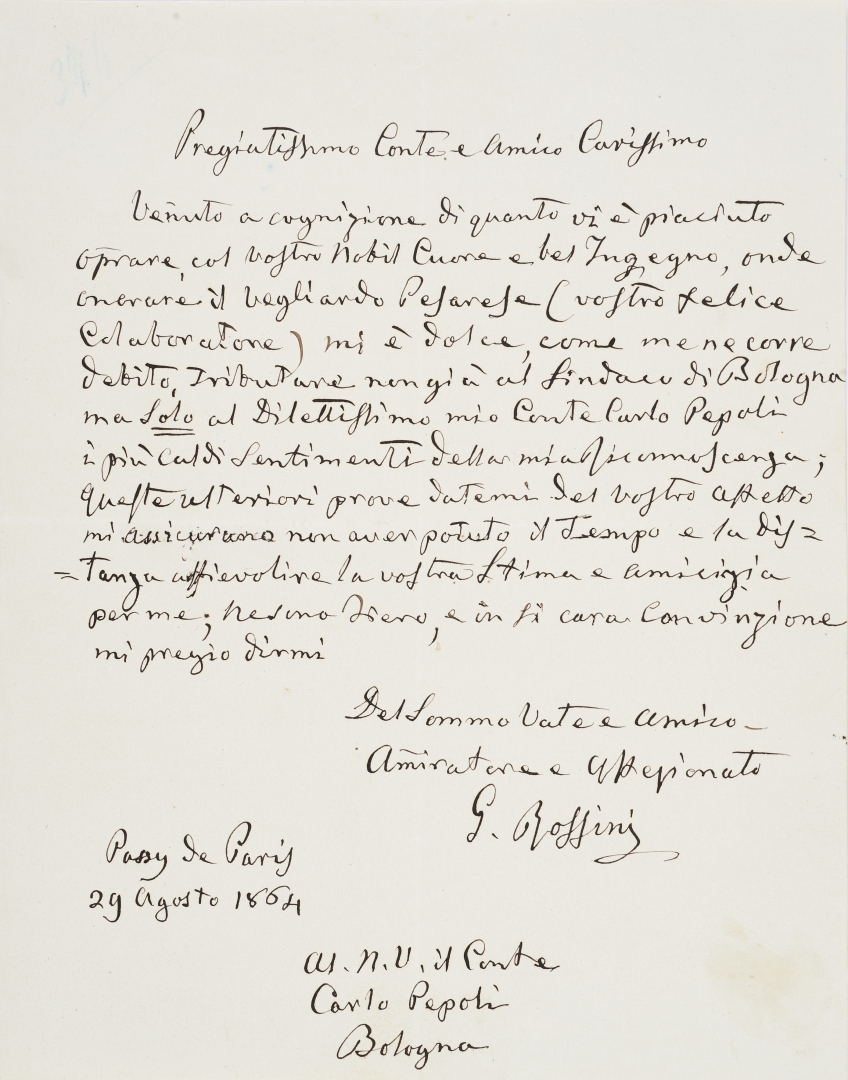 Pregiatissimo Conte e Amico Carissimo
Venuto a cognizione di quanto vi è piaciuto
oprare, col vostro Nobil Cuore e bel Ingegno, onde
onorare il Vegliardo Pesarese (vostro felice
Colaboratore) mi è dolce, come me ne corre
debito, Tributare non già al Sindaco di Bologna
ma Solo al Dilettissimo mio Conte Carlo Pepoli
i più Caldi Sentimenti della mia Riconnoscenza;
queste ulteriori prove datemi del vostro affetto
mi assicurano non aver potuto il Tempo e la Dis=
=tanza affievolire la vostra Stima e amicizia
per me; Ne sono Fiero, e in sì cara Convinzione
mi pregio dirmi
Del Sommo Vate e Amico
Amiratore e Affezionato
G. Rossini
Passy de Paris
29 Agosto 1864
Al. N. U. il Conte
Carlo Pepoli
Bologna